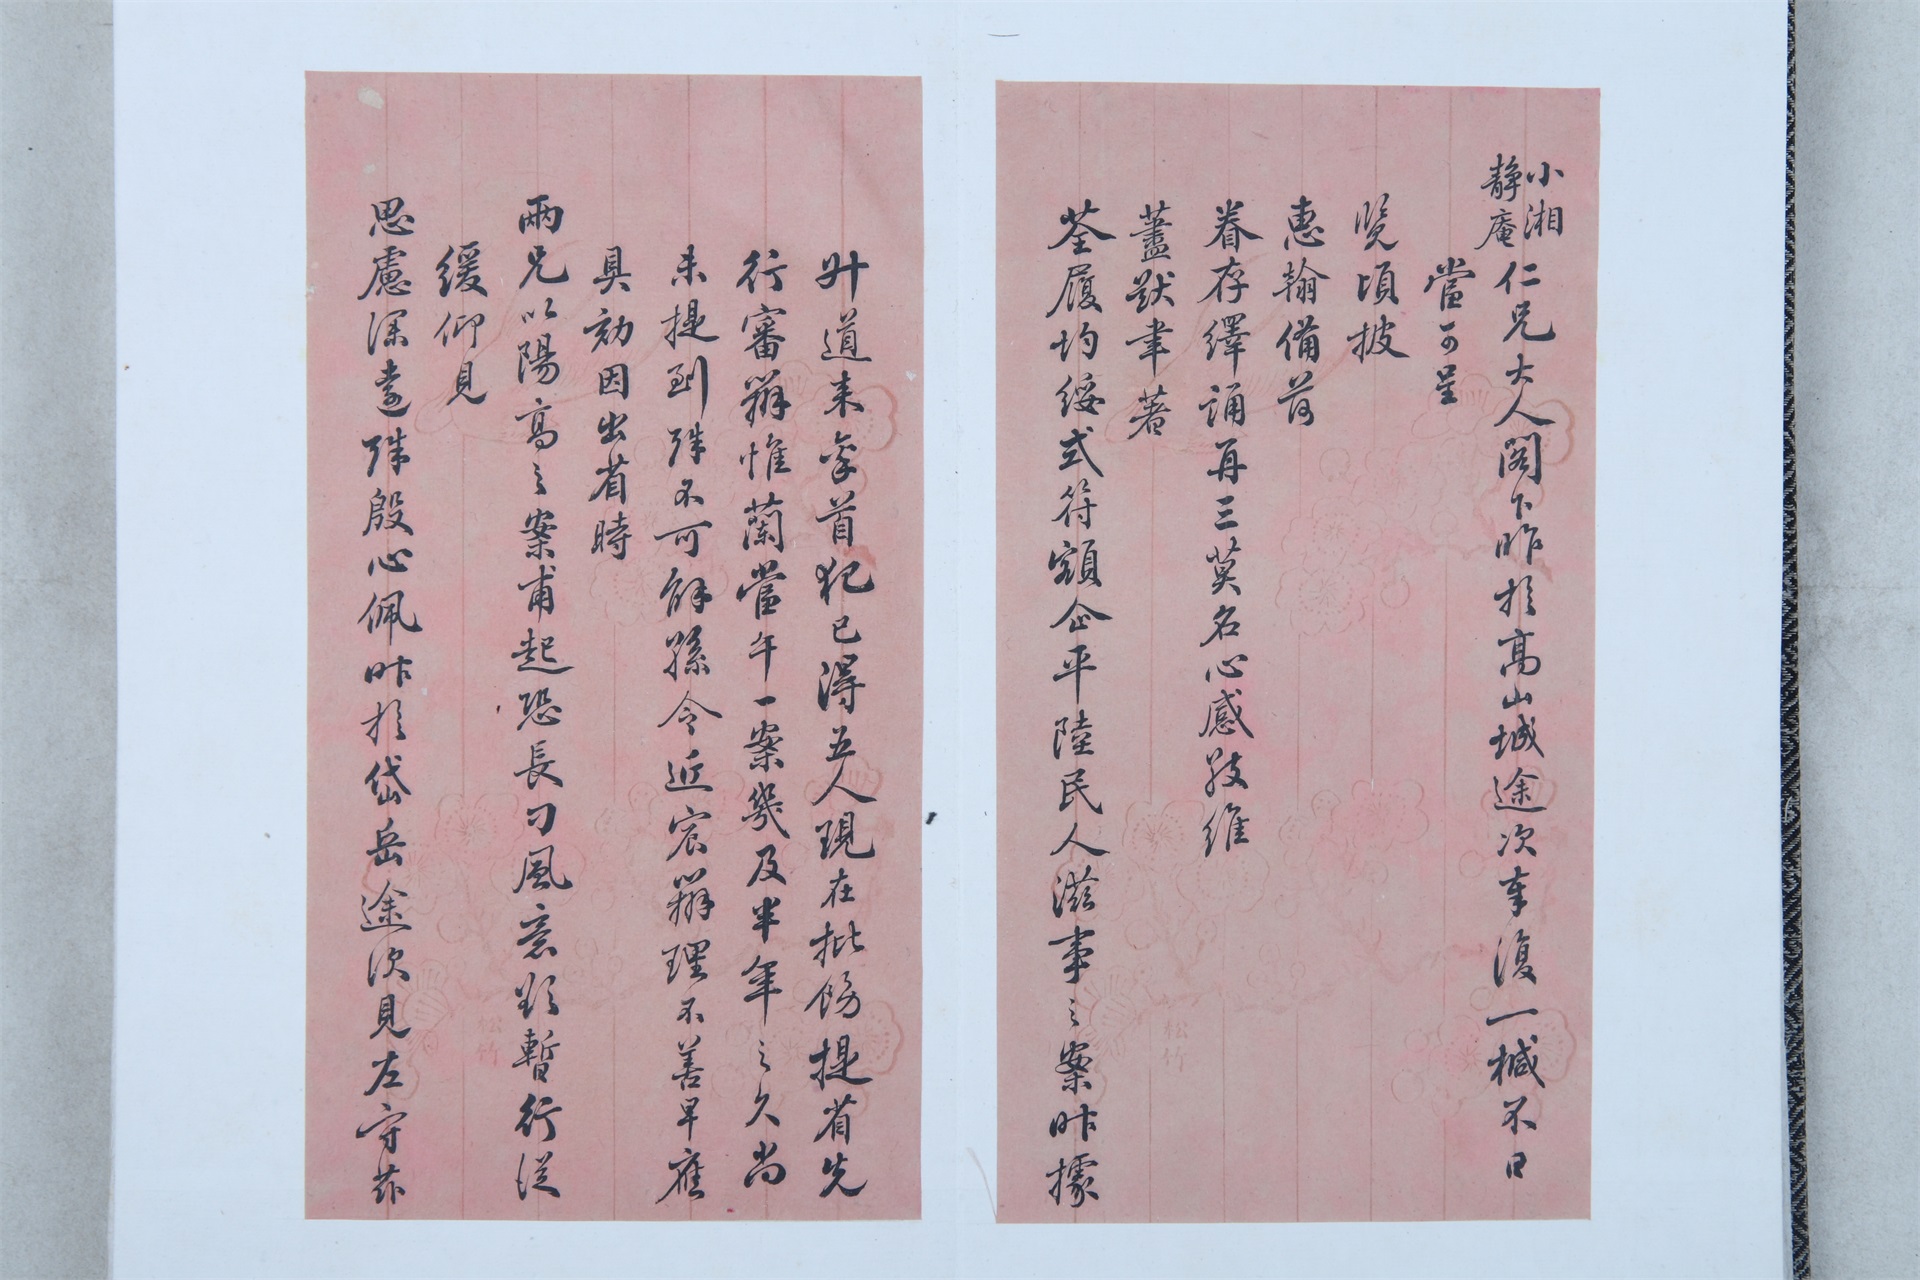 小湘
靜庵
仁兄大人閣下昨於高山城途次奉復一椷不日
當可呈
覽頃披
惠翰備荷
眷存繹誦再三莫名心感敬維
藎猷聿著
荃履均綏式符額企平陸民人滋事之案昨據
升道來稟首犯已得五人現在批飭提省先
行審辦惟蘭當午一案幾及半年之久尚
未提到殊不可解孫令近宸辦理不善早應
具劾因出省時
兩兄以陽高之案甫起恐長刁風意欲暫行從
緩仰見
思慮深遠殊殷心佩昨於岱岳途次見左守茲
松竹
松竹